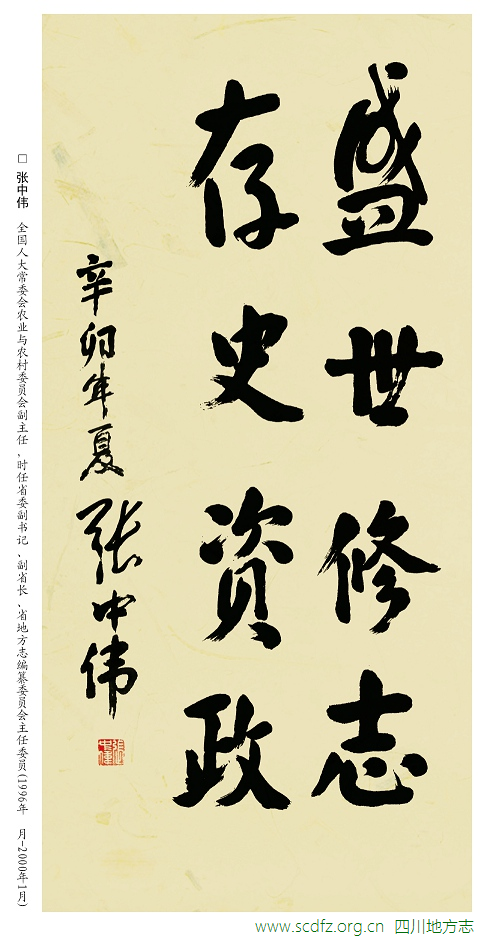 盛世修志
存史资政
辛卯年夏 张中伟
张中伟
□ 张中伟 全国人大常委会农业与农村委员会副主任、时任省委副书记、副省长、省地方志编纂委员会主任委员(1996年 月-2000年1月)
www.scdfz.org.cn 四川地方志